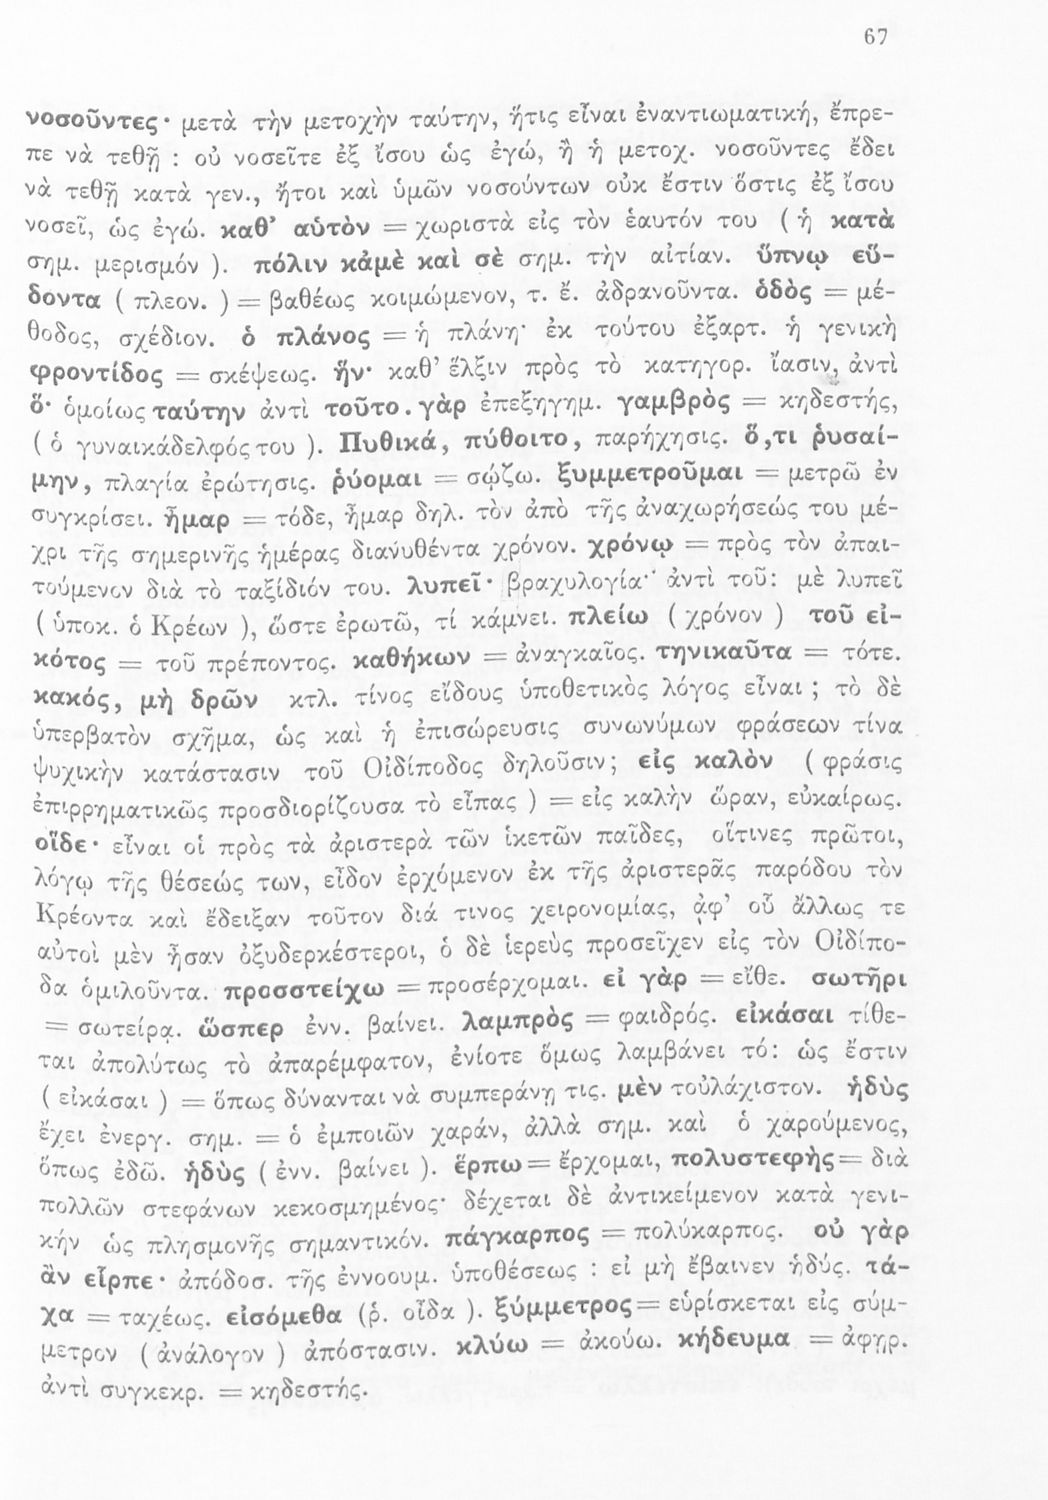 67
νοσοῦντες· μετὰ τὴν μετοχὴν ταύτην, ἥτις εἶναι ἐναντιωματική, ἔπρε-
πε νὰ τεθῇ : οὐ νοσεῖτε ἐξ ἴσου ὡς ἐγώ, ἢ ἡ μετοχ. νοσοῦντες ἔδει
νὰ τεθῇ κατὰ γεν., ἤτοι καὶ ὑμῶν νοσούντων οὐκ ἔστιν ὅστις ἐξ ἴσου
νοσεῖ, ὡς ἐγώ. καθ’ αὑτὸν = χωριστὰ εἰς τὸν ἑαυτόν του ( ἡ κατὰ
σημ. μερισμόν ). πόλιν κἀμὲ καὶ σὲ σημ. τὴν αἰτίαν. ὕπνῳ εὕ-
δοντα ( πλεον. ) = βαθέως κοιμώμενον, τ. ἔ. ἀδρανοῦντα. ὁδὸς = μέ-
θοδος, σχέδιον. ὁ πλάνος = ἡ πλάνη· ἐκ τούτου ἐξαρτ. ἡ γενικὴ
φροντίδος = σκέψεως. ἥν· καθ’ ἕλξιν πρὸς τὸ κατηγορ. ἴασιν, ἀντὶ
ὅ· ὁμοίως ταύτην ἀντὶ τοῦτο. γὰρ ἐπεξηγημ. γαμβρὸς = κηδεστής,
( ὁ γυναικάδελφός του ). Πυθικά, πύθοιτο, παρήχησις. ὅ,τι ῥυσαί-
μην, πλαγία ἐρώτησις. ῥύομαι = σῴζω. ξυμμετροῦμαι = μετρῶ ἐν
συγκρίσει. ἦμαρ = τόδε, ἦμαρ δηλ. τὸν ἀπὸ τῆς ἀναχωρήσεώς του μέ-
χρι τῆς σημερινῆς ἡμέρας διανυθέντα χρόνον. χρόνῳ = πρὸς τὸν ἀπαι-
τούμενον διὰ τὸ ταξίδιόν του. λυπεῖ· βραχυλογία· ἀντὶ τοῦ: μὲ λυπεῖ
( ὑποκ. ὁ Κρέων ), ὥστε ἐρωτῶ, τί κάμνει. πλείω ( χρόνον ) τοῦ εἰ-
κότος = τοῦ πρέποντος. καθήκων = ἀναγκαῖος. τηνικαῦτα = τότε.
κακός, μὴ δρῶν κτλ. τίνος εἴδους ὑποθετικὸς λόγος εἶναι ; τὸ δὲ
ὑπερβατὸν σχῆμα, ὡς καὶ ἡ ἐπισώρευσις συνωνύμων φράσεων τίνα
ψυχικὴν κατάστασιν τοῦ Οἰδίποδος δηλοῦσιν; εἰς καλὸν ( φράσις
ἐπιρρηματικῶς προσδιορίζουσα τὸ εἶπας ) = εἰς καλὴν ὥραν, εὐκαίρως.
οἵδε· εἶναι οἱ πρὸς τὰ ἀριστερὰ τῶν ἱκετῶν παῖδες, οἵτινες πρῶτοι,
λόγῳ τῆς θέσεώς των, εἶδον ἐρχόμενον ἐκ τῆς ἀριστερᾶς παρόδου τὸν
Κρέοντα καὶ ἔδειξαν τοῦτον διά τινος χειρονομίας, ἀφ’ οὗ ἄλλως τε
αὐτοὶ μὲν ἦσαν ὀξυδερκέστεροι, ὁ δὲ ἱερεὺς προσεῖχεν εἰς τὸν Οἰδίπο-
δα ὁμιλοῦντα. προσστείχω = προσέρχομαι. εἰ γὰρ = εἴθε. σωτῆρι
= σωτείρᾳ. ὥσπερ ἐνν. βαίνει. λαμπρὸς = φαιδρός. εἰκάσαι τίθε-
ται ἀπολύτως τὸ ἀπαρέμφατον, ἐνίοτε ὅμως λαμβάνει τό: ὡς ἔστιν
( εἰκάσαι ) = ὅπως δύνανται νὰ συμπεράνῃ τις. μὲν τοὐλάχιστον. ἡδὺς
ἔχει ἐνεργ. σημ. = ὁ ἐμποιῶν χαράν, ἀλλὰ σημ. καὶ ὁ χαρούμενος,
ὅπως ἐδῶ. ἡδὺς ( ἐνν. βαίνει ). ἕρπω = ἔρχομαι, πολυστεφὴς = διὰ
πολλῶν στεφάνων κεκοσμημένος· δέχεται δὲ ἀντικείμενον κατὰ γενι-
κήν ὡς πλησμονῆς σημαντικόν. πάγκαρπος = πολύκαρπος. οὐ γὰρ
ἂν εἷρπε· ἀπόδοσ. τῆς ἐννοουμ. ὑποθέσεως : εἰ μὴ ἔβαινεν ἡδύς. τά-
χα = ταχέως. εἰσόμεθα (ῥ. οἶδα ). ξύμμετρος = εὑρίσκεται εἰς σύμ-
μετρον ( ἀνάλογον ) ἀπόστασιν. κλύω = ἀκούω. κήδευμα = ἀφῃρ.
ἀντὶ συγκεκρ. = κηδεστής.